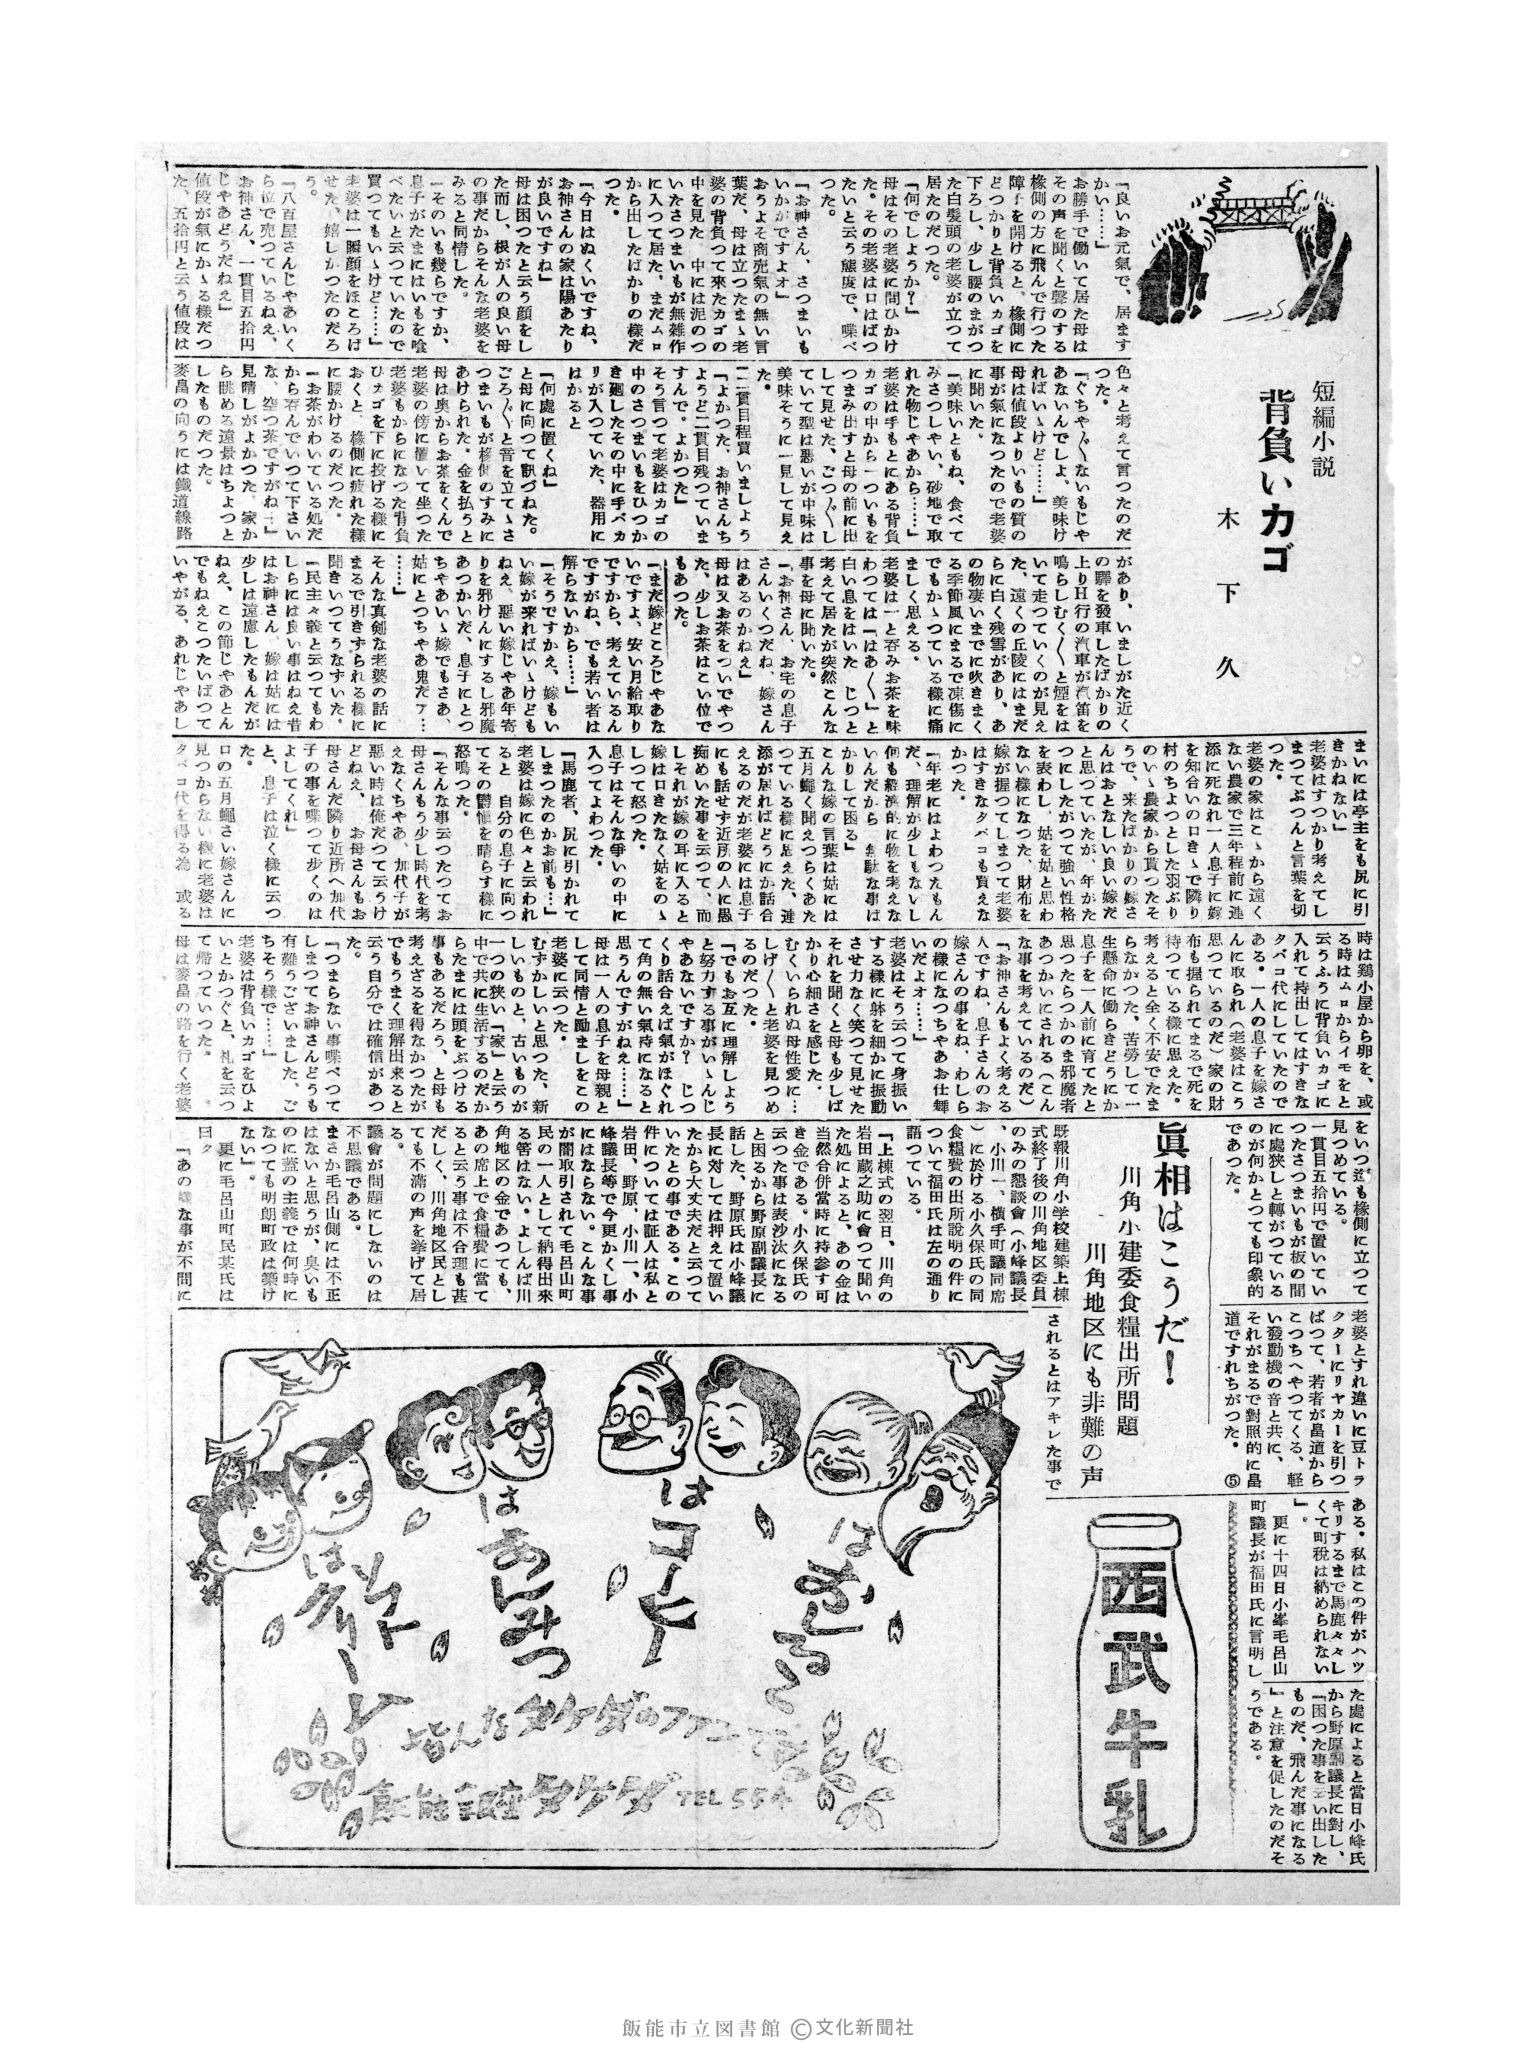 短編小説
背負いカゴ
木下久
「良いお元氣で、居ます
かい……」
お勝手で働いて居た母は
その声を聞くと聲のする
椽側の方に飛んで行つた
障子を開けると、椽側に
どつかりと背負いカゴを
下ろし、少し腰のまがつ
た白髪頭の老婆が立つて
居たのだつた。
「何でしようか?」
母はその老婆に問ひかけ
た。その老婆は口はばつ
たいと云う態度で、喋べ
つた。
「お神さん、さつまいも
いかがですよオ」
おうよそ商売氣の無い言
葉だ、母は立つたまゝ老
婆の背負つて來たカゴの
中を見た 中には泥のつ
いたさつまいもが無雑作
に入つて居た。まだムロ
から出したばかりの様だ
つた。
「今日はぬくいですね、
お神さんの家は陽あたり
が良いですね」
母は困つたと云う顔をし
た而し、根が人の良い母
の事だからそんな老婆を
みると同情した。
「そのいも幾らですか、
息子がたまにはいもを喰
べたいと云つていたので
買つてもいゝけど……」
老婆は一瞬顔をほころば
せた、嬉しかつたのだろ
う。
「八百屋さんじやあいく
ら位で売つているねえ、
お神さん、一貫目五拾円
じやあどうだねえ」
値段が氣にかゝる様だつ
た、五拾円と云う値段は
色々と考えて言つたのだ
つた。
「ぐちや〳〵ないもじや
あないんでしよ。美味け
ればいゝけど……」
母は値段よりいもの質の
事が氣になつたので老婆
に聞いた。
「美味いともね、食べて
みさつしやい、砂地で取
れた物じやあから……」
老婆は手もとにある背負
カゴの中から一ついもを
つまみ出すと母の前に出
して見せた、ごつ〳〵し
ていて型は悪いが中味は
美味そうに一見して見え
た。
「二貫目程買いましよう
「よかつた、お神さんち
ようど二貫目残つていま
すんで。よかつた」
そう言つて老婆はカゴの
中のさつまいもをひつか
き廻したその中に手バカ
リが入つていた、器用に
はかると
「何處に置くね」
と母に向つて訊づねた。
ごろ〳〵と音を立てゝさ
つまいもが椽側のすみに
あけられた。金を払うと
母は奥からお茶をくんで
老婆の傍に置いて坐つた
老婆もからになつた背負
ひカゴを下に投げる様に
おくと、椽側に疲れた様
に腰かけるのだつた。
「お茶がわいている処だ
から呑んでいつて下さい
な、空つ茶ですがね―」
見晴しがよかつた。家か
ら眺める遠景はちよつと
したものだつた。
麥畠の向うには鐵道線路
があり、いましがた近く
の驛を發車したばかりの
上りH行の汽車が汽笛を
鳴らしむく〳〵と煙をは
いて走つていくのが見え
た、遠くの丘陵にはまだ
らに白く残雪があり、あ
の物凄いまでに吹きまく
る季節風にまるで凍傷に
でもかゝつている様に痛
ましく思える。
老婆は一と呑みお茶を味
わつては「はあ〳〵」と
白い息をはいた じつと
考えて居たが突然こんな
事を母に聞いた。
「お神さん、お宅の息子
さんいくつだね、嫁さん
はあるのかねえ」
母は又お茶をついでやつ
た、少しお茶はこい位で
もあつた。
「まだ嫁どころじやあな
いですよ、安い月給取り
ですから、考えているん
ですがね、でも若い者は
解らないから……」
「そうですかえ、嫁もい
い嫁が来ればいゝけども
ねえ、悪い嫁じやあ年寄
りを邪けんにするし邪魔
あつかいだ、息子にとつ
ちやあいゝ嫁でもさあ、
姑にとつちやあ鬼だァ…
……」
そんな真剣な老婆の話に
まるで引きずられる様に
聞きいつてうなずいた。
「民主々義と云つてもわ
しらには良い事はねえ昔
はお神さん、嫁は姑には
少しは遠慮したもんだが
ねえ、この節じやあとん
でもねえこつたいばつて
いやがる、あれじやあし
まいには亭主をも尻に引
きかねない」
老婆はすつかり考えてし
まつてぷつんと言葉を切
つた。
老婆の家はこゝから遠く
ない農家で三年程前に連
添に死なれ一人息子に嫁
を知合いの口きゝで隣り
村のちよつとした羽ぶり
のいゝ農家から貰つたそ
うで、来たばかりの嫁さ
んはおとなしい良い嫁だ
と思つていたが、年がた
つにしたがつて強い性格
を表わし、姑を姑と思わ
ない様になつた、財布を
嫁が握つてしまつて老婆
はすきなタバコも買えな
かつた。
「年老にはよわつたもん
だ、理解が少しもないし
何も経済的に物を考えな
いんだから、無駄な事ば
かりして困る」
こんな嫁の言葉は姑には
五月蠅く聞えつらくあた
つている様に思えた、連
添が居ればどうにか話合
えるのだが老婆には息子
にも話せず近所の人に愚
痴めいた事を云つて、而
しそれが嫁の耳に入ると
嫁は口きたなく姑をのゝ
しつて怒つた。
息子はそんな争いの中に
入つてよわつた。
「馬鹿者、尻に引かれて
しまつたのかお前も…」
老婆は嫁に色々と云われ
ると 自分の息子に向つ
てその鬱憤を晴らす様に
怒鳴つた。
「そんな事云つたつてお
母さんもう少し時代を考
えなくちやあ、加代子が
悪い時は俺だつて云うけ
どねえ、お母さんもお
母さんだ隣り近所へ加代
子の事を喋つて歩くのは
よしてくれ」
と、息子は泣く様に云つ
た。
口の五月蠅さい嫁さんに
見つからない様に老婆は
タバコ代を得る為 或る
時は鶏小屋から卵を、或
る時はムロからイモをと
云うふうに背負いカゴに
入れて持出してはすきな
タバコ代にしていたので
ある。一人の息子を嫁さ
んに取られ(老婆はこう
思つているのだ)家の財
布も握られてまるで死を
待つている様に思えた。
考えると全く不安でたま
らなかつた。苦勞して一
生懸命に働らきどうにか
息子を一人前に育てたと
思つたらつかのま邪魔者
あつかいにされる(こん
な事を考えているのだ)
「お神さんもよく考える
人ですね、息子さんのお
嫁さんの事をね、わしら
の様になつちやあお仕舞
いだよォ」
老婆はそう云つて身振い
する様に躰を細かに振動
させ力なく笑つて見せた
それを聞くと母も少しば
かり心細さを感じた。
むくいられぬ母性愛に…
しげ〳〵と老婆を見つめ
るのだつた。
「でもお互に理解しよう
と努力する事がいゝんじ
やあないですか? じつ
くり話合えば氣がほぐれ
て角の無い氣持になると
思うんですがねえ……」
母は一人の息子を母親と
して同情と励ましをこの
老婆に云つた。
むずかしいと思つた、新
しいものと、古いものが
一つの狭い「家」と云う
中で共に生活するのだか
らたまには頭をぶつける
事もあるだろう、と母も
考えざるを得なかつたが
でもうまく理解出来ると
云う自分では確信があつ
た。
「つまらない事喋べつて
しまつてお神さんどうも
有難うございました、ご
ちそう様で……」
老婆は背負いカゴをひよ
いとかつぐと、礼を云つ
て帰つていつた。
母は麥畠の路を行く老婆
をいつ迄も椽側に立つて
見つめている。
一貫目五拾円で置いてい
つたさつまいもが板の間
に處狭しと轉がつている
のが何かとつても印象的
であつた。
老婆とすれ違いに豆トラ
クターにリヤカーを引つ
ぱつて、若者が畠道から
こつちへやつてくる、軽
い發動機の音と共に、
それがまるで對照的に畠
道ですれちがつた。 ⑤
眞相はこうだ!
川角小建委食糧出所問題
川角地区にも非難の声
既報川角小学校建築上棟
式終了後の川角地区委員
のみの懇談會(小峰議長
、小川一、横手町議同席
)に於ける小久保氏の同
食糧費の出所説明の件に
ついて福田氏は左の通り
語つている。
「上棟式の翌日、川角の
岩田蔵之助に會つて聞い
た処によると、あの金は
当然合併當時に持参す可
き金である。小久保氏の
云つた事は表沙汰になる
と困るから野原副議長に
話した、野原氏は小峰議
長に対しては押えて置い
たから大丈夫だと云つて
いたとの事である。この
件については証人は私と
岩田、野原、小川一、小
峰議長等で今更かくし事
にはならない。こんな事
が闇取引されて毛呂山町
民の一人として納得出來
る筈はない。よしんば川
角地区の金であつても、
あの席上で食糧費に當て
ると云う事は不合理も甚
だしく、川角地区民とし
ても不満の声を挙げて居
る。
議會が問題にしないのは
不思議である。
まさか毛呂山側には不正
はないと思うが、臭いも
のに蓋の主義では何時に
なつても明朗町政は築け
ない」
更に毛呂山町民某氏は
曰ク
「あの様な事が不問に
されるとはアキレた事で
ある。私はこの件がハツ
キリするまで馬鹿々々し
くて町税は納められない
」。
更に十四日小峯毛呂山
町議長が福田氏に言明し
た處によると當日小峰氏
から野原副議長に對し、
「困つた事を云い出した
ものだ、飛んだ事になる
」と注意を促したのだそ
うである。
西武牛乳
はおしるこ
はコーヒー
はあんみつ
はソフトクリーム
皆んなタケダのファンです
飯能銀座タケダ TEL 554
飯能市立図書館 ©文化新聞社